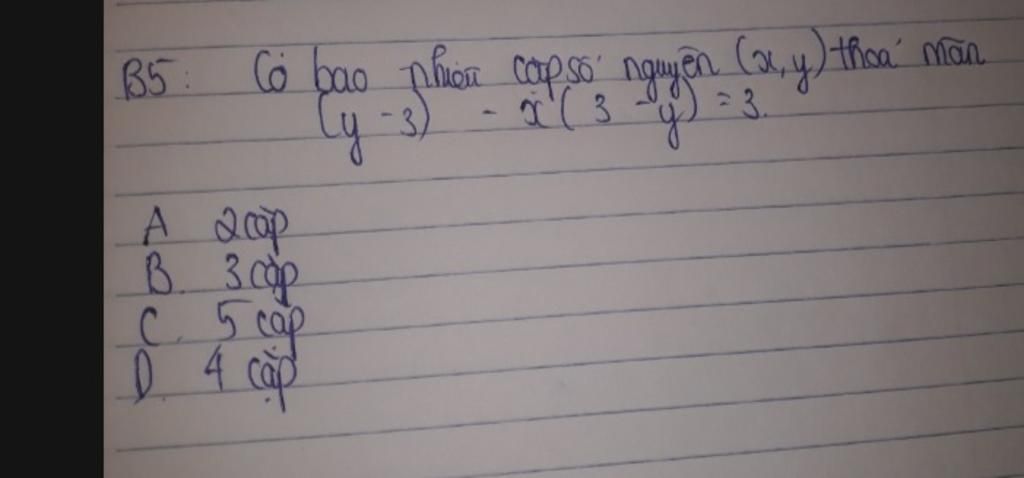 B5: Có bao nhiêu cặp số nguyên (x,y) thoả mãn
(y - 3) - x(3 - y) = 3.
A 2 cặp
B. 3 cặp
C. 5 cặp
D. 4 cặp